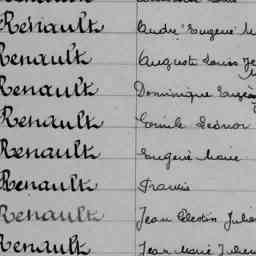 Renault André Eugène M
Renault Auguste Louis Je
Renault Dominique Eugène
Renault Emile Léonor
Renault Eugène Marie
Renault Francis
Renault Jean Célestin Julie
Renault Jean Marie Julien